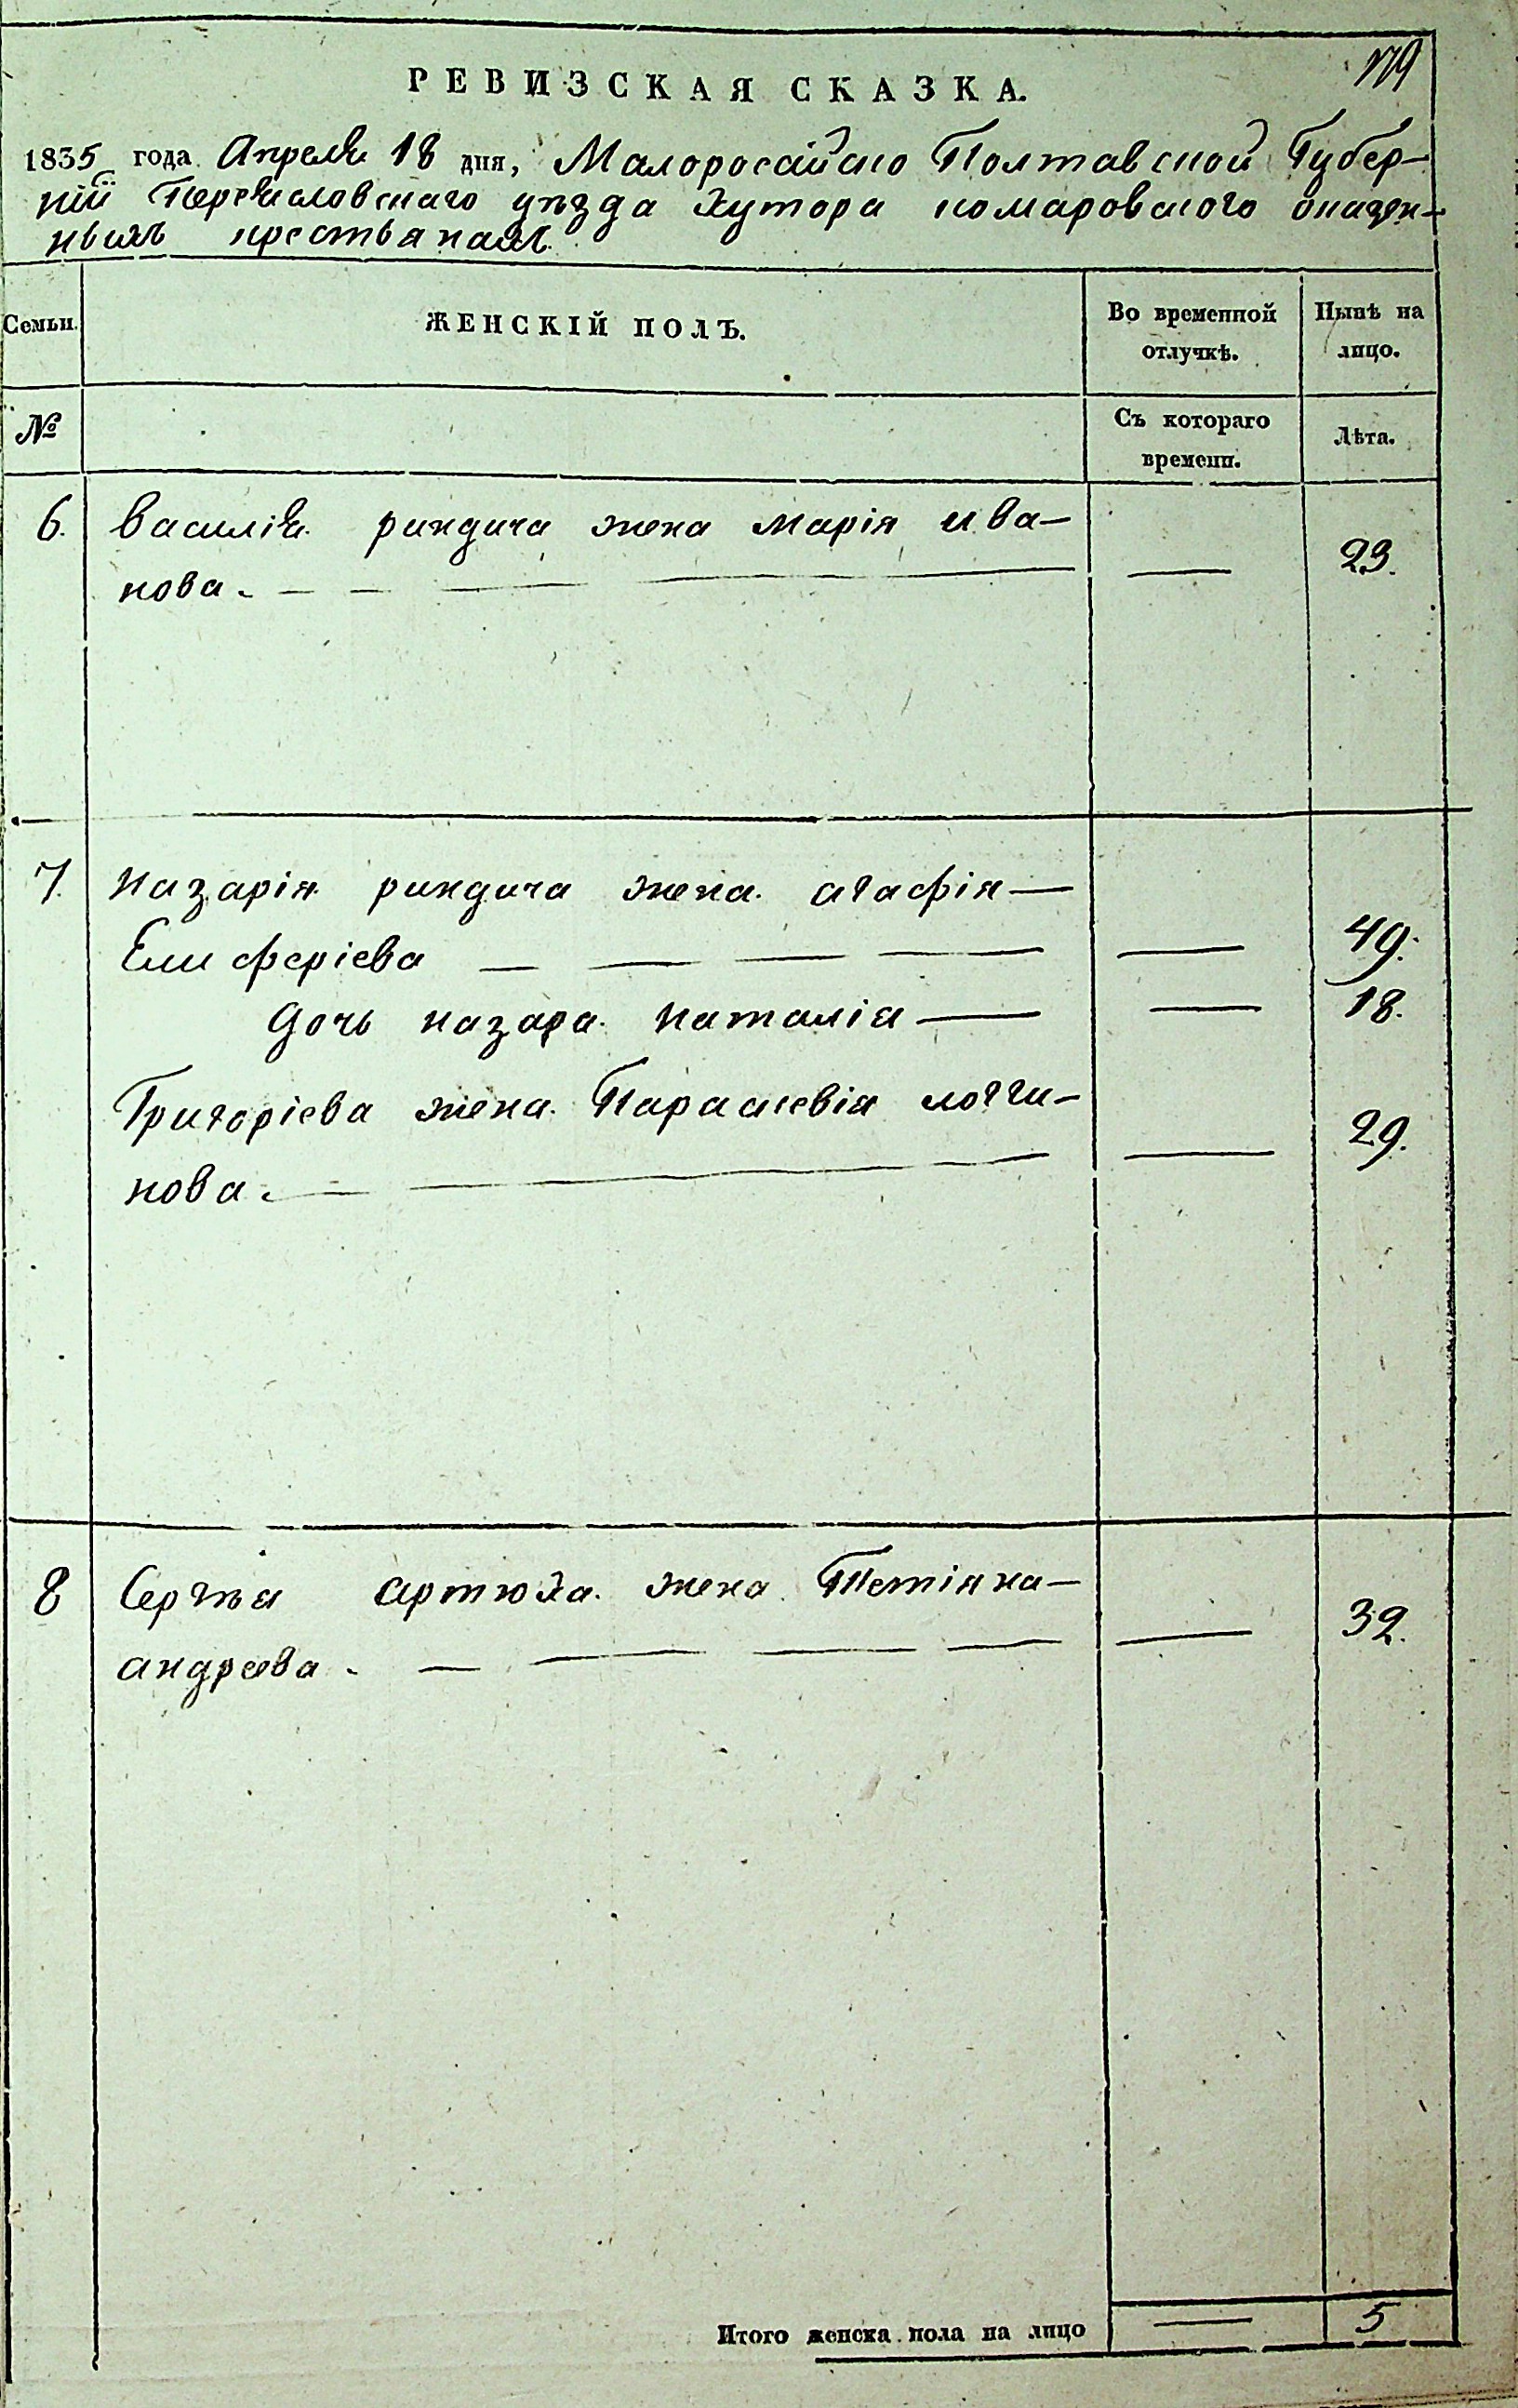 179
РЕВИЗСКАЯ СКАЗКА.
1835 года Апреля 18 дня, Малоросийско Полтавской Губер-
нїй Переясловскаго уѣзда Хутора комаровского оказен-
ныхъ крестьянахъ
Семьи. ЖЕНСКІЙ ПОЛЪ. Во временной отлучкѣ. Нынѣ на лицо.
№ Съ котораго времени. Лѣта.
6. Василія риндича жена марія ива-
нова. — — — — 23.
7. Назарія риндича жена. агафія —
Елисферіева — — — — — 49.
дочь назара. наталія — — 18.
Григоріева жена. Параскевія логги-
нова. — — — 29.
8 Сергѣя Артюха. жена Тетіяна —
андреева. — — — — — 32.
Итого женска пола на лицо — 5